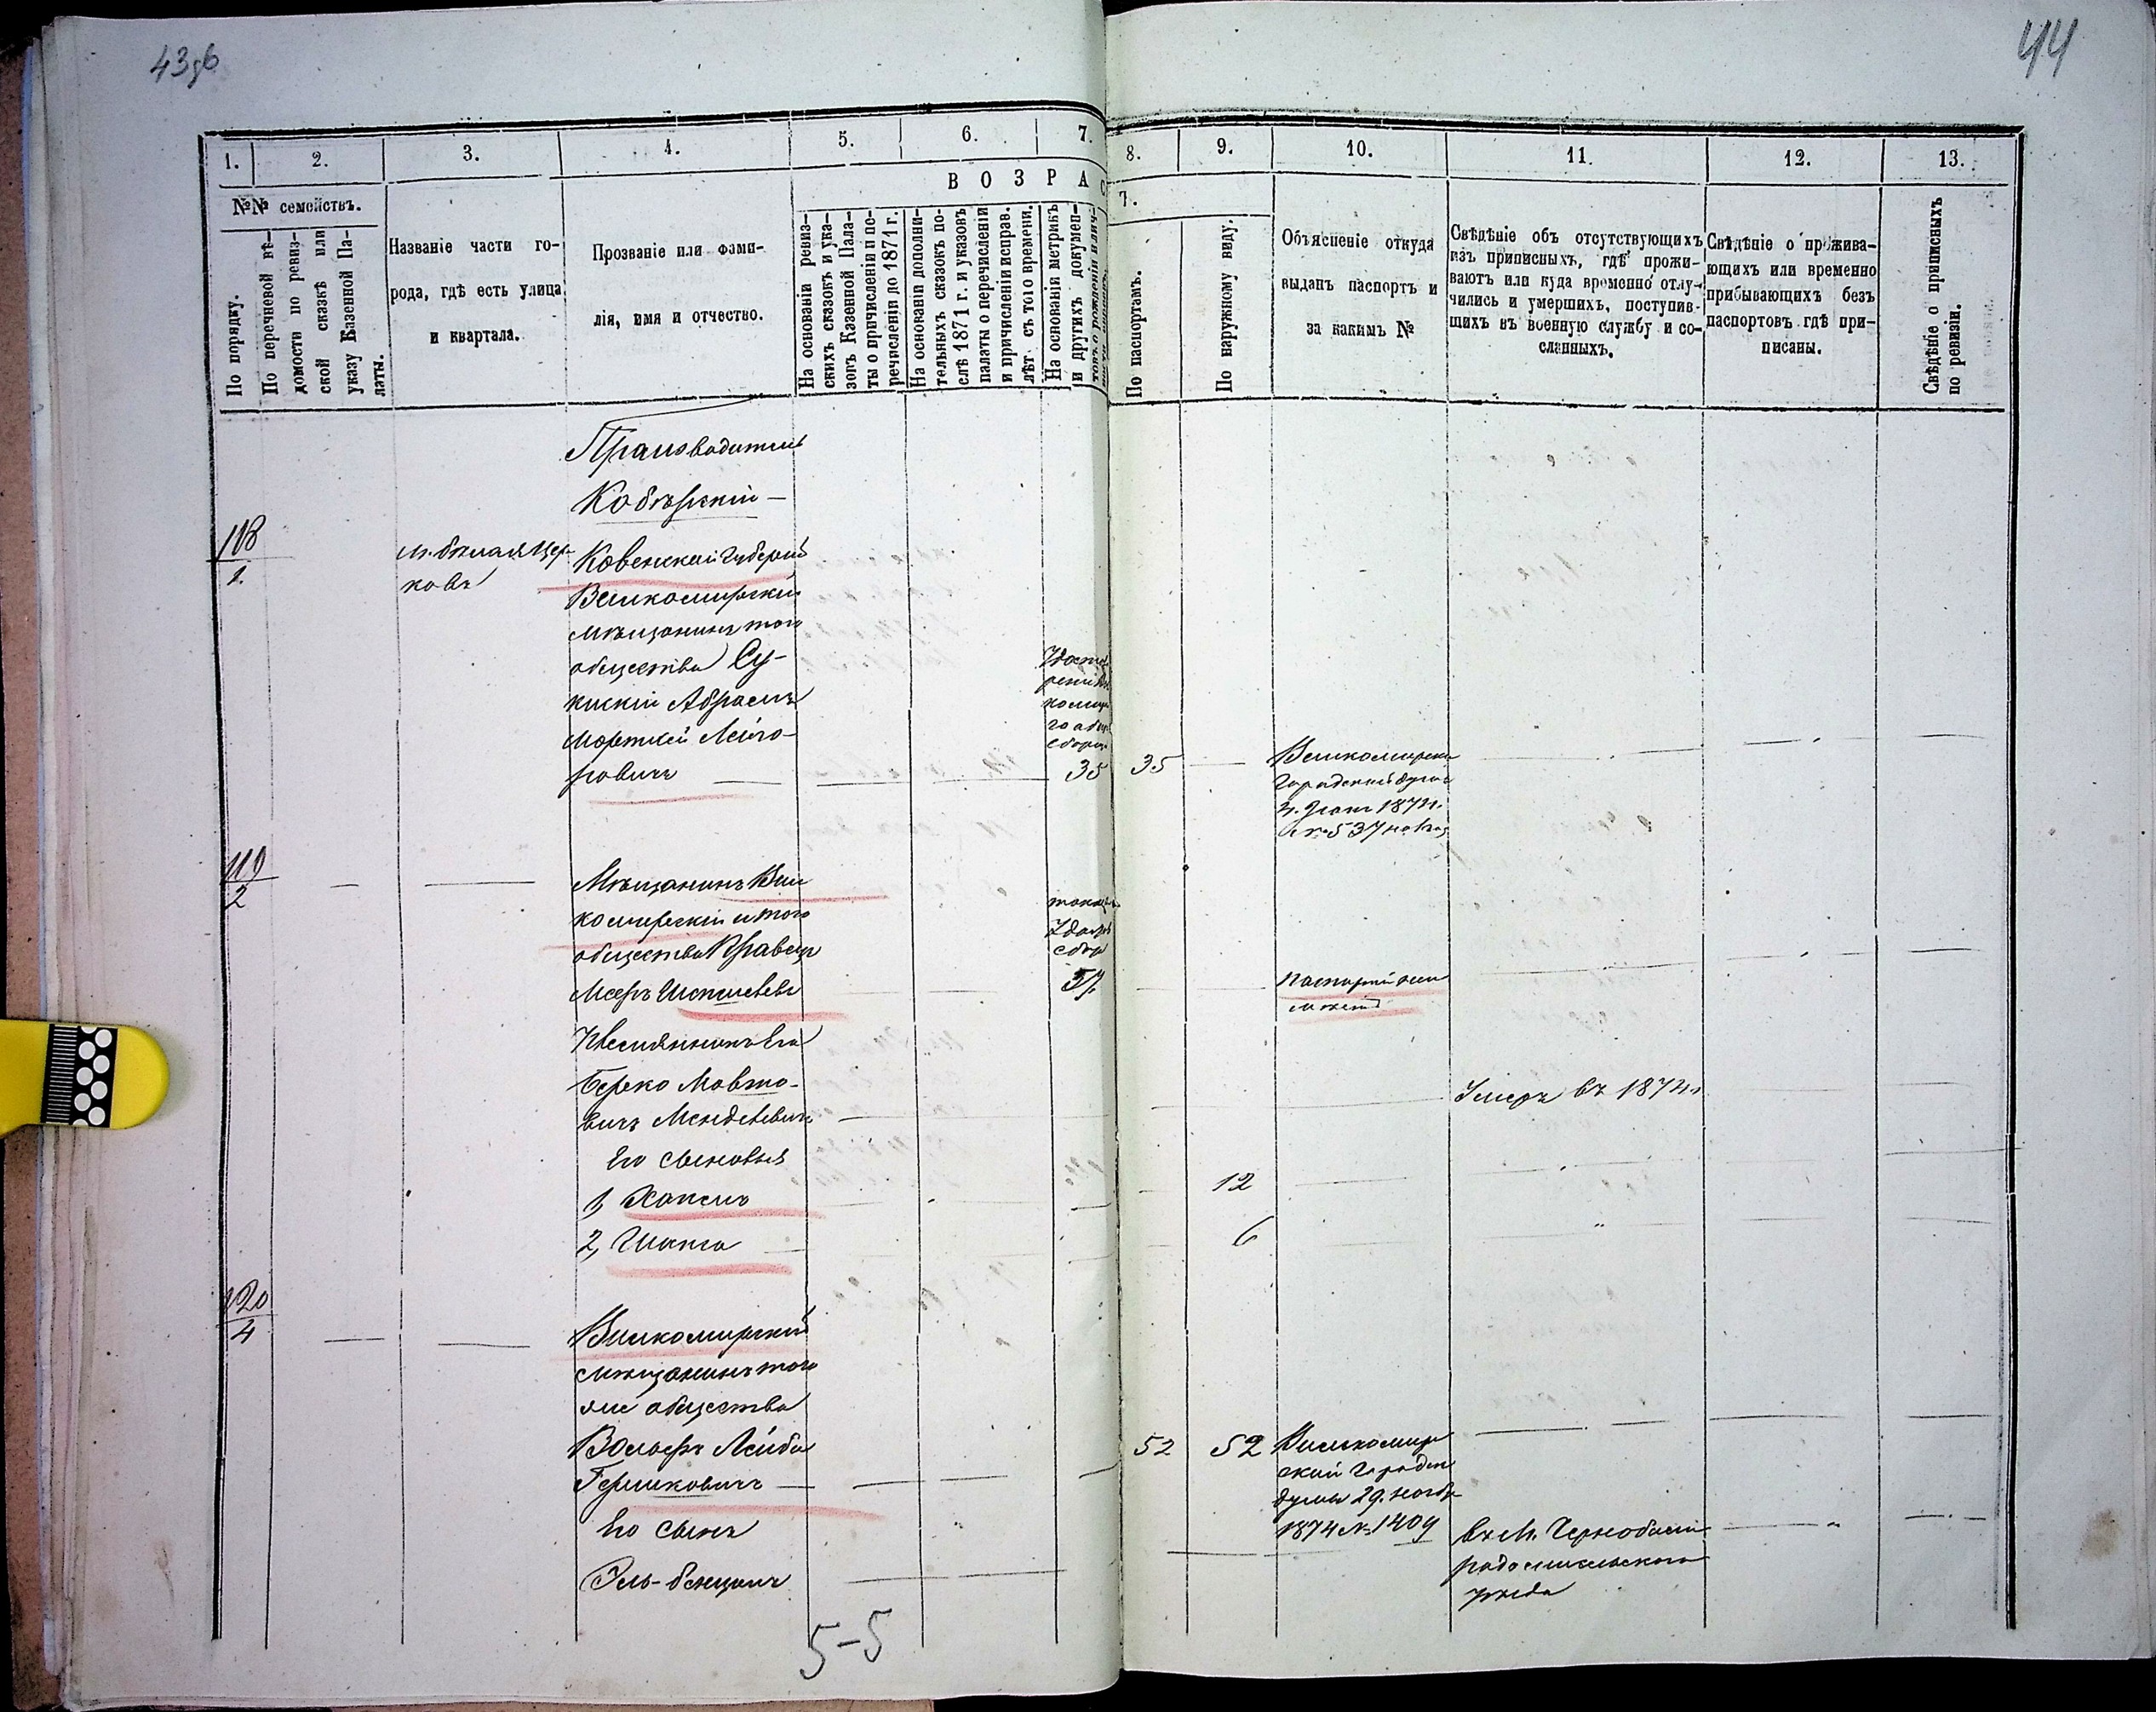 43об
44
1.
2.
3.
4.
5.
6.
7.
8.
9.
10.
11.
12.
13.
В О З Р А С
Т.
№№ семействъ.
По порядку.
По перечневой вѣ-
домости по ревиз-
ской сказкѣ или
указу Казенной Па-
латы.
Названіе части го-
рода, гдѣ есть улица
и квартала.
Прозваніе или фами-
лія, имя и отчество.
На основаніи ревиз-
скихъ сказокъ и ука-
зовъ Казенной Пала-
ты о причисленіи и пе-
речисленіи до 1871 г.
На основаніи дополни-
тельныхъ сказокъ по-
слѣ 1871 г. и указовъ
палаты о перечисленіи
и причисленіи исправ.
лѣт. съ того времени.
На основаніи метрикъ
и другихъ докумен-
товъ о рожденіи
По паспортамъ.
По наружному виду.
Объясненіе откуда
выданъ паспортъ и
за какимъ №
Свѣдѣніе объ отсутствующихъ
изъ приписныхъ, гдѣ прожи-
ваютъ или куда временно отлу-
чились и умершихъ, поступив-
шихъ въ военную службу и со-
сланныхъ.
Свѣдѣніе о прожива-
ющихъ или временно
прибывающихъ безъ
паспортовъ гдѣ при-
писаны.
Свѣдѣніе о приписныхъ
по ревизіи.
Производитель
118
1.
м. Бѣлая Цер-
ковь
Ковенской Губерніи
Вилкомирскій
мѣщанинъ того
общества Су-
кискій Абрамъ
Мортхей Лейзо-
ровичъ
35
35
Вилкомирской
Городской Думы
1874 г.
№ 537
119
2
Мѣщанинъ Вил
комирскій и того
общества Кравецъ
Мееръ
37
Племянникъ Его
Берко Мовшо-
вичъ Менделевичъ
Умеръ въ 1874 г.
Его сыновья
1, Хаимъ
12
2,
6
120
4
Вилкомирскій
мѣщанинъ того
же общества
Вольфъ Лейба
Гершковичъ
52
52
Вилкомир
ской Городск
думы 29. Ноябр
1874 № 1409
Его сынъ
въ М. Чернобылѣ
радомысльскаго
уѣзда
5-5